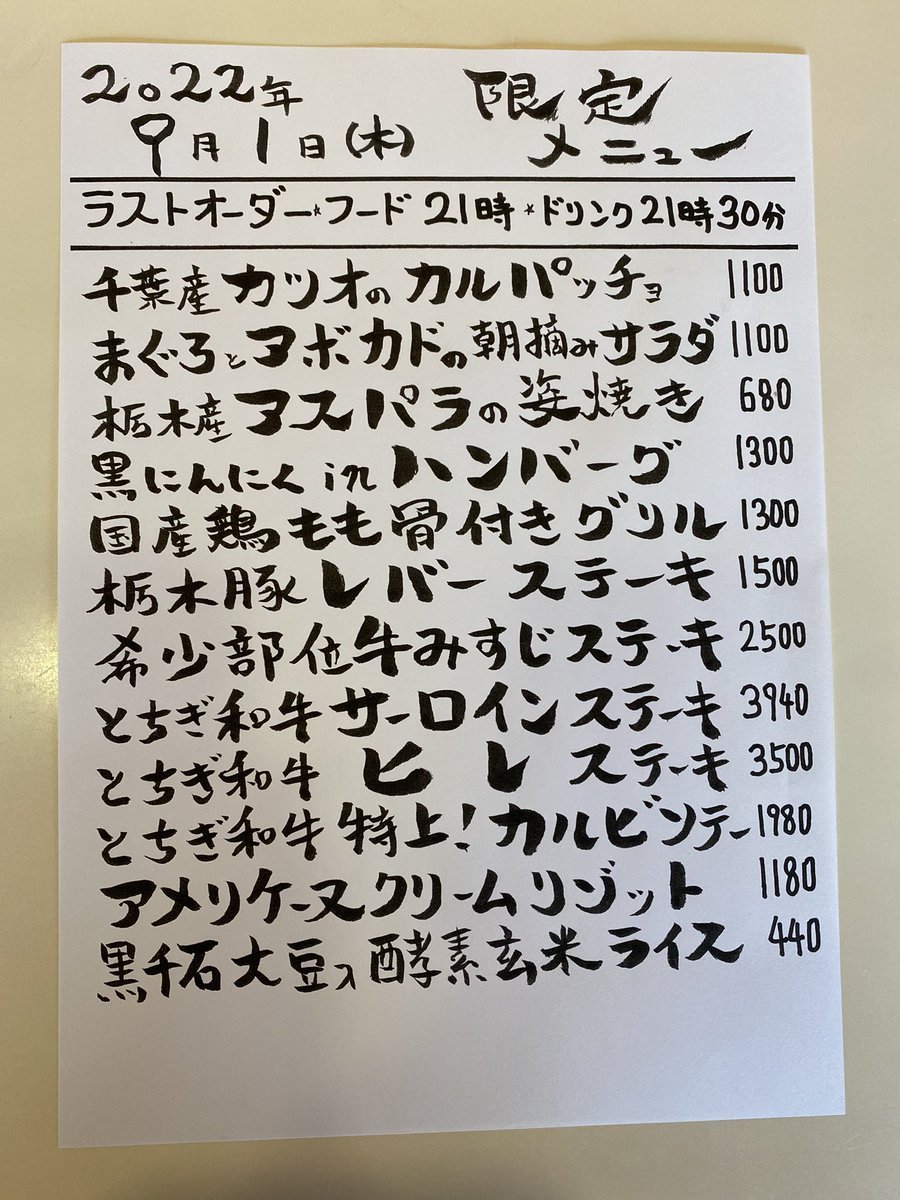 2022年 限定
9月1日(木) メニュー
ラストオーダー*フード21時*ドリンク21時30分
千葉産カツオのカルパッチョ 1100
まぐろとアボカドの朝摘みサラダ 1100
栃木産アスパラの姿焼き 680
黒にんにくinハンバーグ 1300
国産鶏もも骨付きグリル 1300
栃木豚レバーステーキ 1500
希少部位牛みすじステーキ 2500
とちぎ和牛サーロインステーキ 3940
とちぎ和牛ヒレステーキ 3500
とちぎ和牛特上!カルビソテー 1980
アメリケーヌクリームリゾット 1180
黒千石大豆入酵素玄米ライス 440